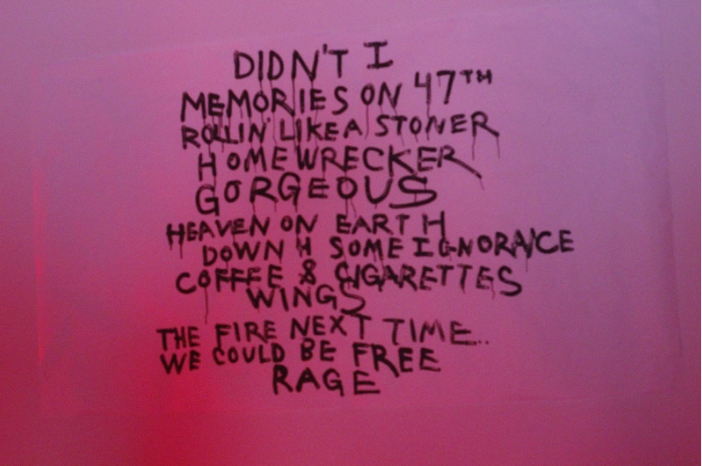 DIDN'T I
MEMORIES ON 47TH
ROLLIN' LIKE A STONER
HOMEWRECKER
GORGEOUS
HEAVEN ON EARTH
DOWN H SOME IGNORANCE
COFFEE & CIGARETTES
WINGS
THE FIRE NEXT TIME..
WE COULD BE FREE
RAGE